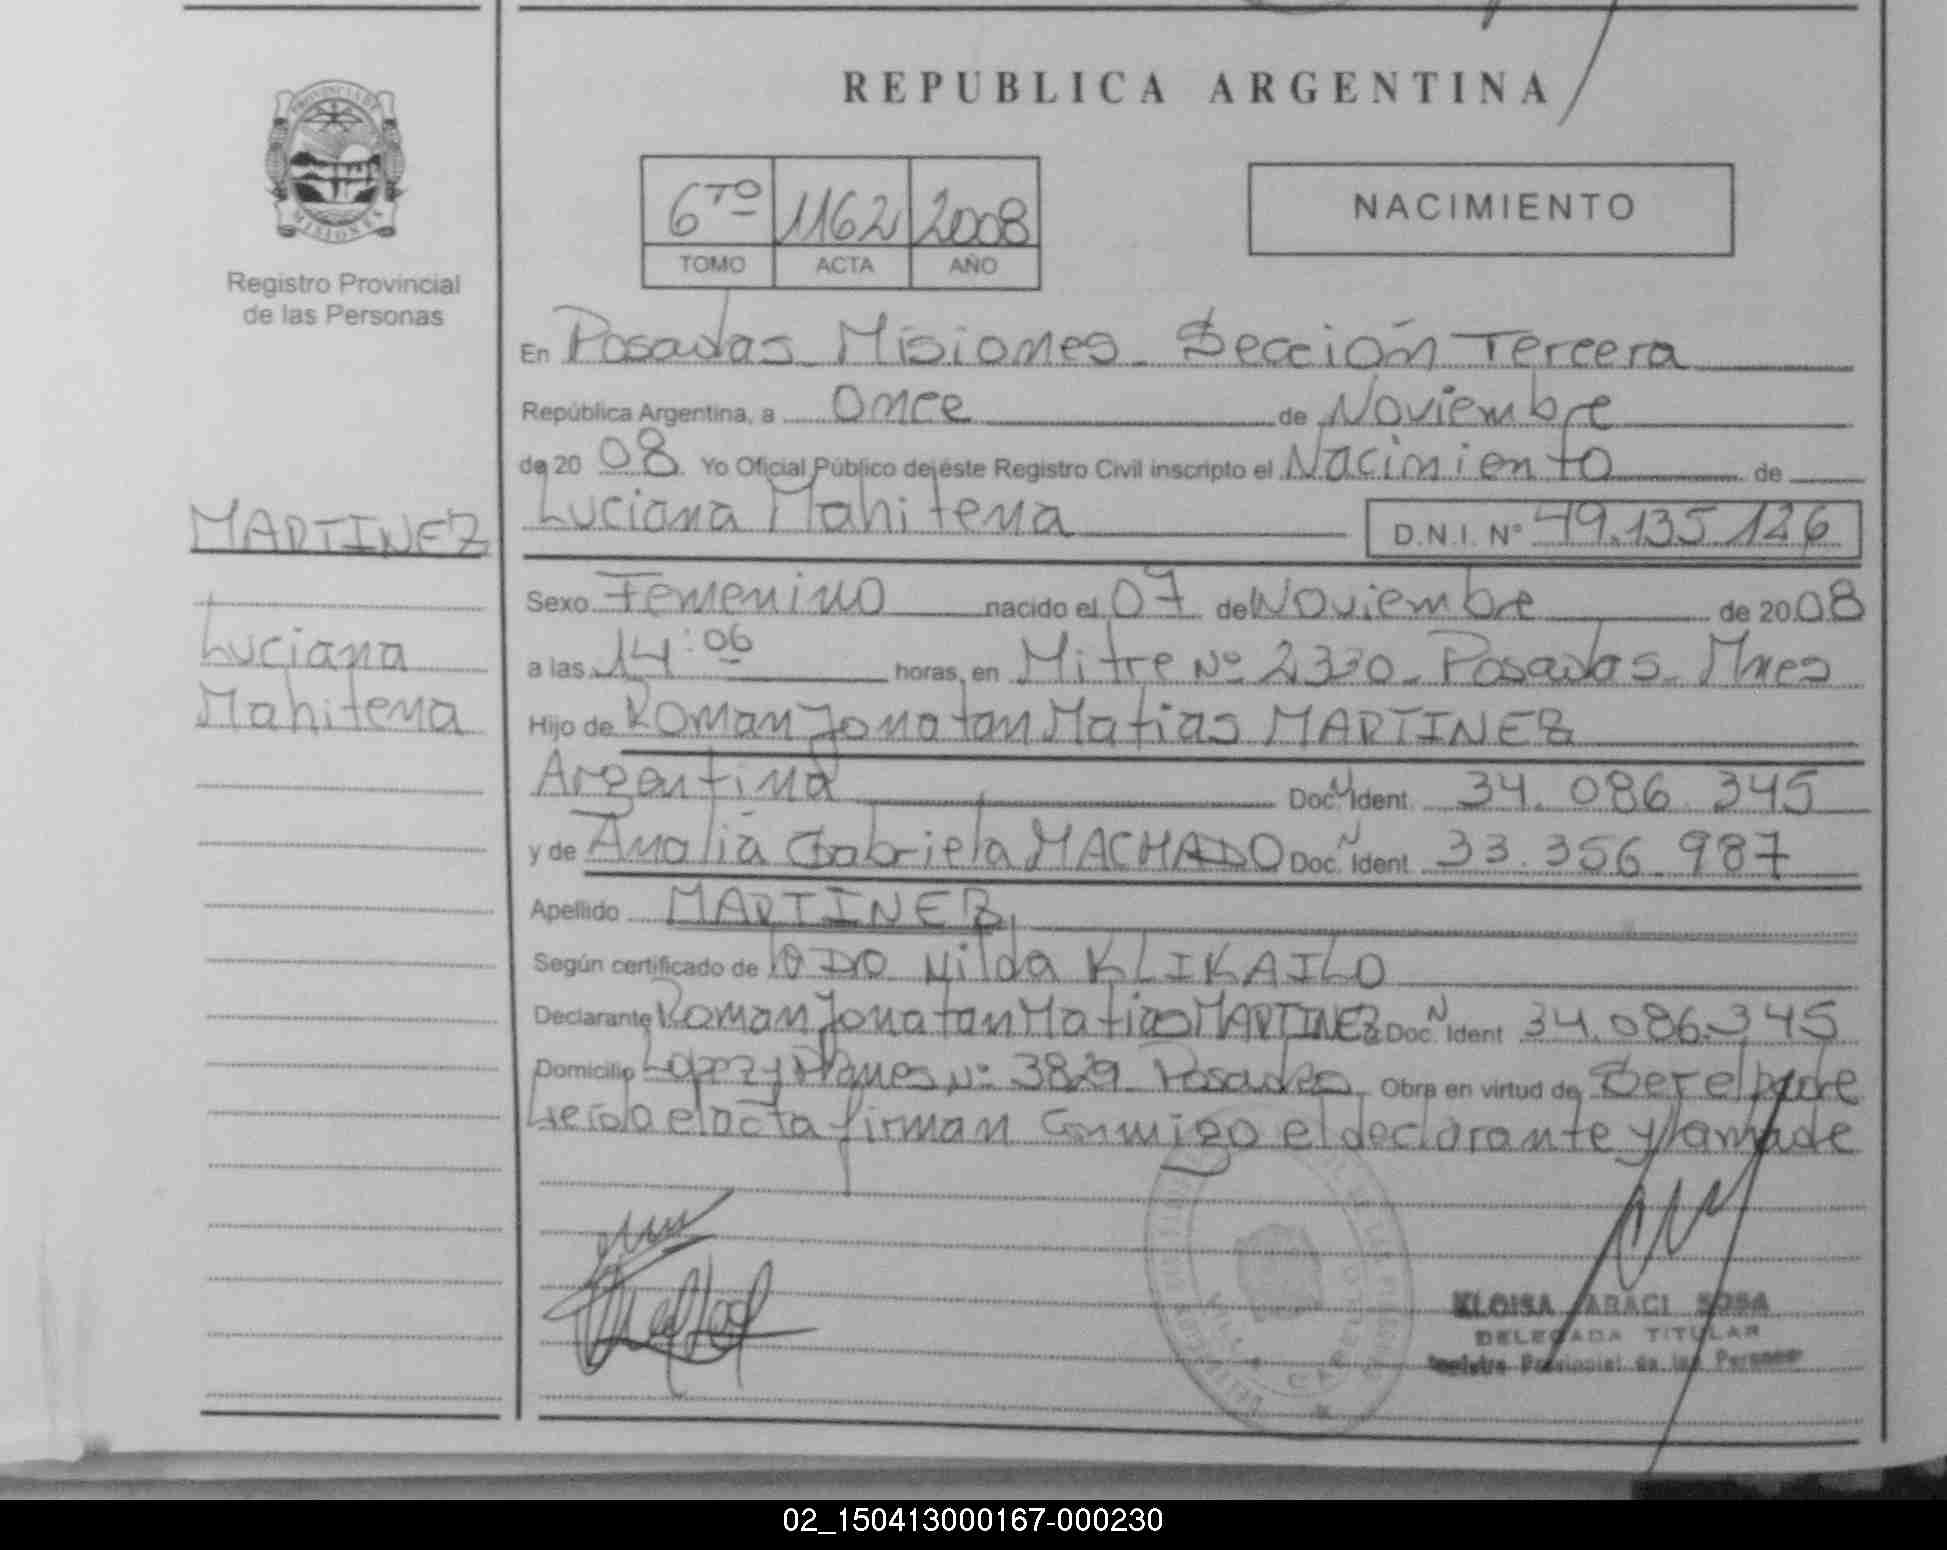 REPUBLICA ARGENTINA
PROVINCIA DE
MISIONES
Registro Provincial
de las Personas
6TO 1162 2008
TOMO ACTA AÑO
NACIMIENTO
En Posadas Misiones Sección Tercera
República Argentina, a Once de Noviembre
de 2008 Yo Oficial Público de éste Registro Civil inscripto el Nacimiento de
Luciana Mahitena D.N.I. Nº 49.135.126
MARTINEZ
Luciana
Mahitena
Sexo Femenino nacido el 07 de Noviembre de 2008
a las 14:06 horas, en Mitre Nº 2330 - Posadas - Mnes
Hijo de Roman Jonatan Matias MARTINEZ
Argentina Doc. Ident. 34.086.345
y de Analia Gabriela MACHADO Doc. Ident. 33.356.987
Apellido MARTINEZ
Según certificado de Nilda KLIKAILO
Declarante Roman Jonatan Matias MARTINEZ Doc. Ident 34.086.345
Domicilio Lopez y Planes Nº 3829 Posadas Obra en virtud de Ser el padre
Leida el acta firman conmigo el declarante y la madre
ELOISA ARACI SOSA
DELEGADA TITULAR
Registro Provincial de las Personas
02_150413000167-000230